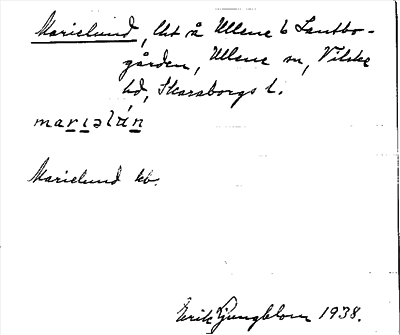 Marielund, lht å Ullene 6 Lantbo-
gården, Ullene sn, Vilske
hd, Skaraborgs l.
marıəlún
Marielund kb.
Erik Ljungblom 1938.